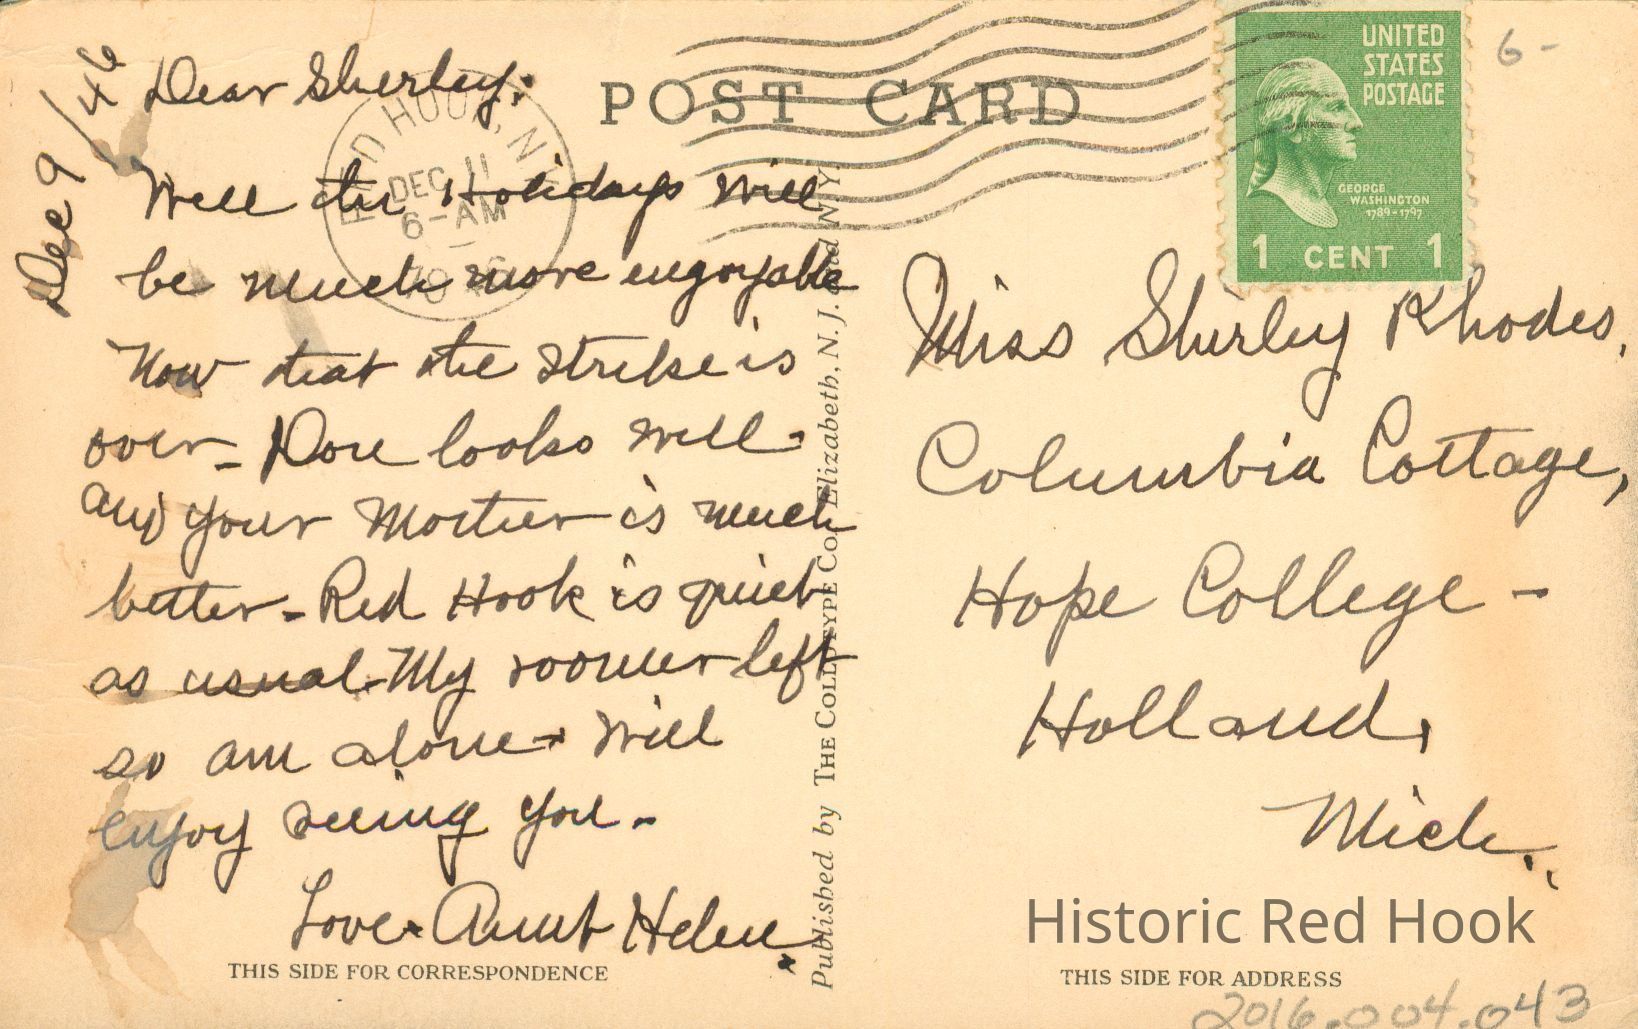 Dec 9/46
Dear Sherley:
Well the Holidays will
be much more engoyable
Now that the strike is
over - Dore looks well -
and your Mother is much
better - Red Hook is quiet
as usual - My roomer left
so am alone - Will
enjoy seeing you -
Love - Aunt Helen
THIS SIDE FOR CORRESPONDENCE
RED HOOK, N.Y.
DEC 11
6-AM
1946
POST CARD
Published by THE COLLOTYPE Co., Elizabeth, N. J. and N. Y.
UNITED
STATES
POSTAGE
GEORGE
WASHINGTON
1789-1797
1 CENT 1
6-
Miss Shirley Rhodes,
Columbia Cottage,
Hope College -
Holland,
Mich.
Historic Red Hook
THIS SIDE FOR ADDRESS
2016.004.043